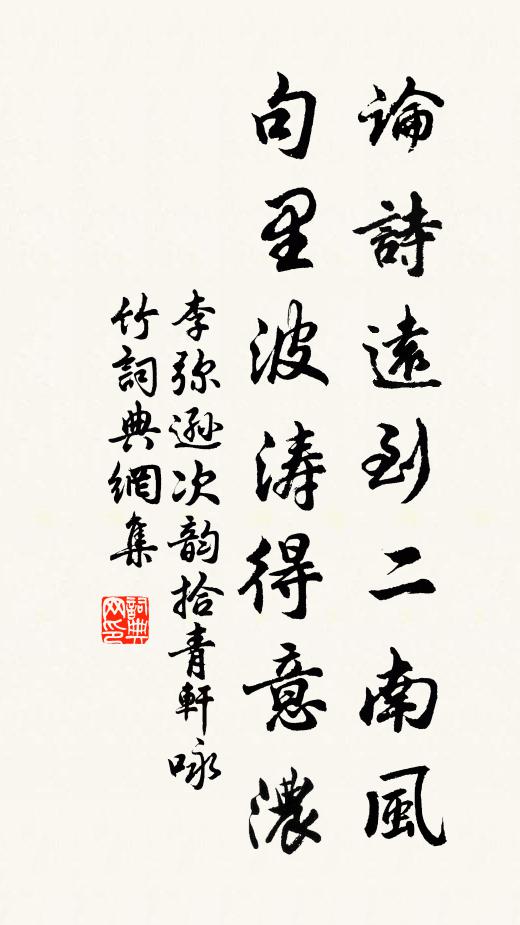 論詩遠到二南風
句里波涛得意濃
李弥遜次韵拾青軒咏
竹詞典網集
詞典
网印